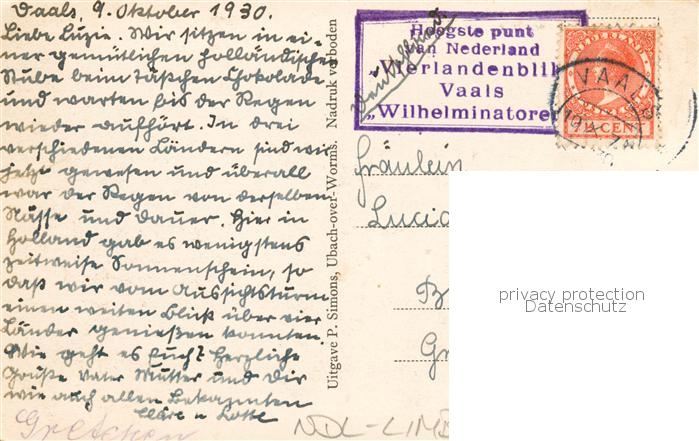 Vaals, 9. Oktober 1930.
Liebe Luzie. Wir sitzen in ei-
ner gemütlichen holländischen
Stube beim Täßchen Chokolade
und warten bis der Regen
wieder aufhört. In drei
verschiedenen Ländern sind wir
jetzt gewesen und überall
war der Regen von derselben
Nässe und Dauer. Hier in
Holland gab es wenigstens
zeitweise Sonnenschein, so
daß wir vom Aussichtsturm
einen weiten Blick über vier
Länder genießen konnten.
Wie geht es Euch? Herzliche
Grüße Vater Mutter und Dir
wie auch allen Bekannten
Cläre u Lotte
Gretchen
Uitgave P. Simons, Ubach-over-Worms. Nadruk verboden
Hoogste punt
van Nederland
„Vierlandenblik
Vaals
„Wilhelminatore
Deutschland
NEDERLAND
CENT
VAALS
Fräulein
Lucia
B
Gr
privacy protection
Datenschutz
NDL-LIMB